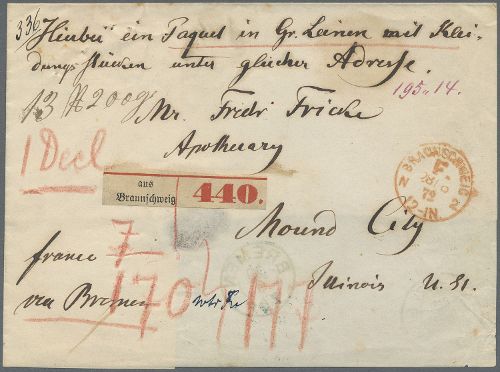 336
Hierbei ein Paquet in Gr. Leinen mit Klei-
dungsstücken unter gleicher Adresse.
195.14.
13 200 g
Mr. Fredr Fricke
1 Decl
Apothecary
BRAUNSCHWEIG
12-1N.
aus
Braunschweig
440.
Mound City
7
franco
BREM
Illinois U. St.
via Bremen
170